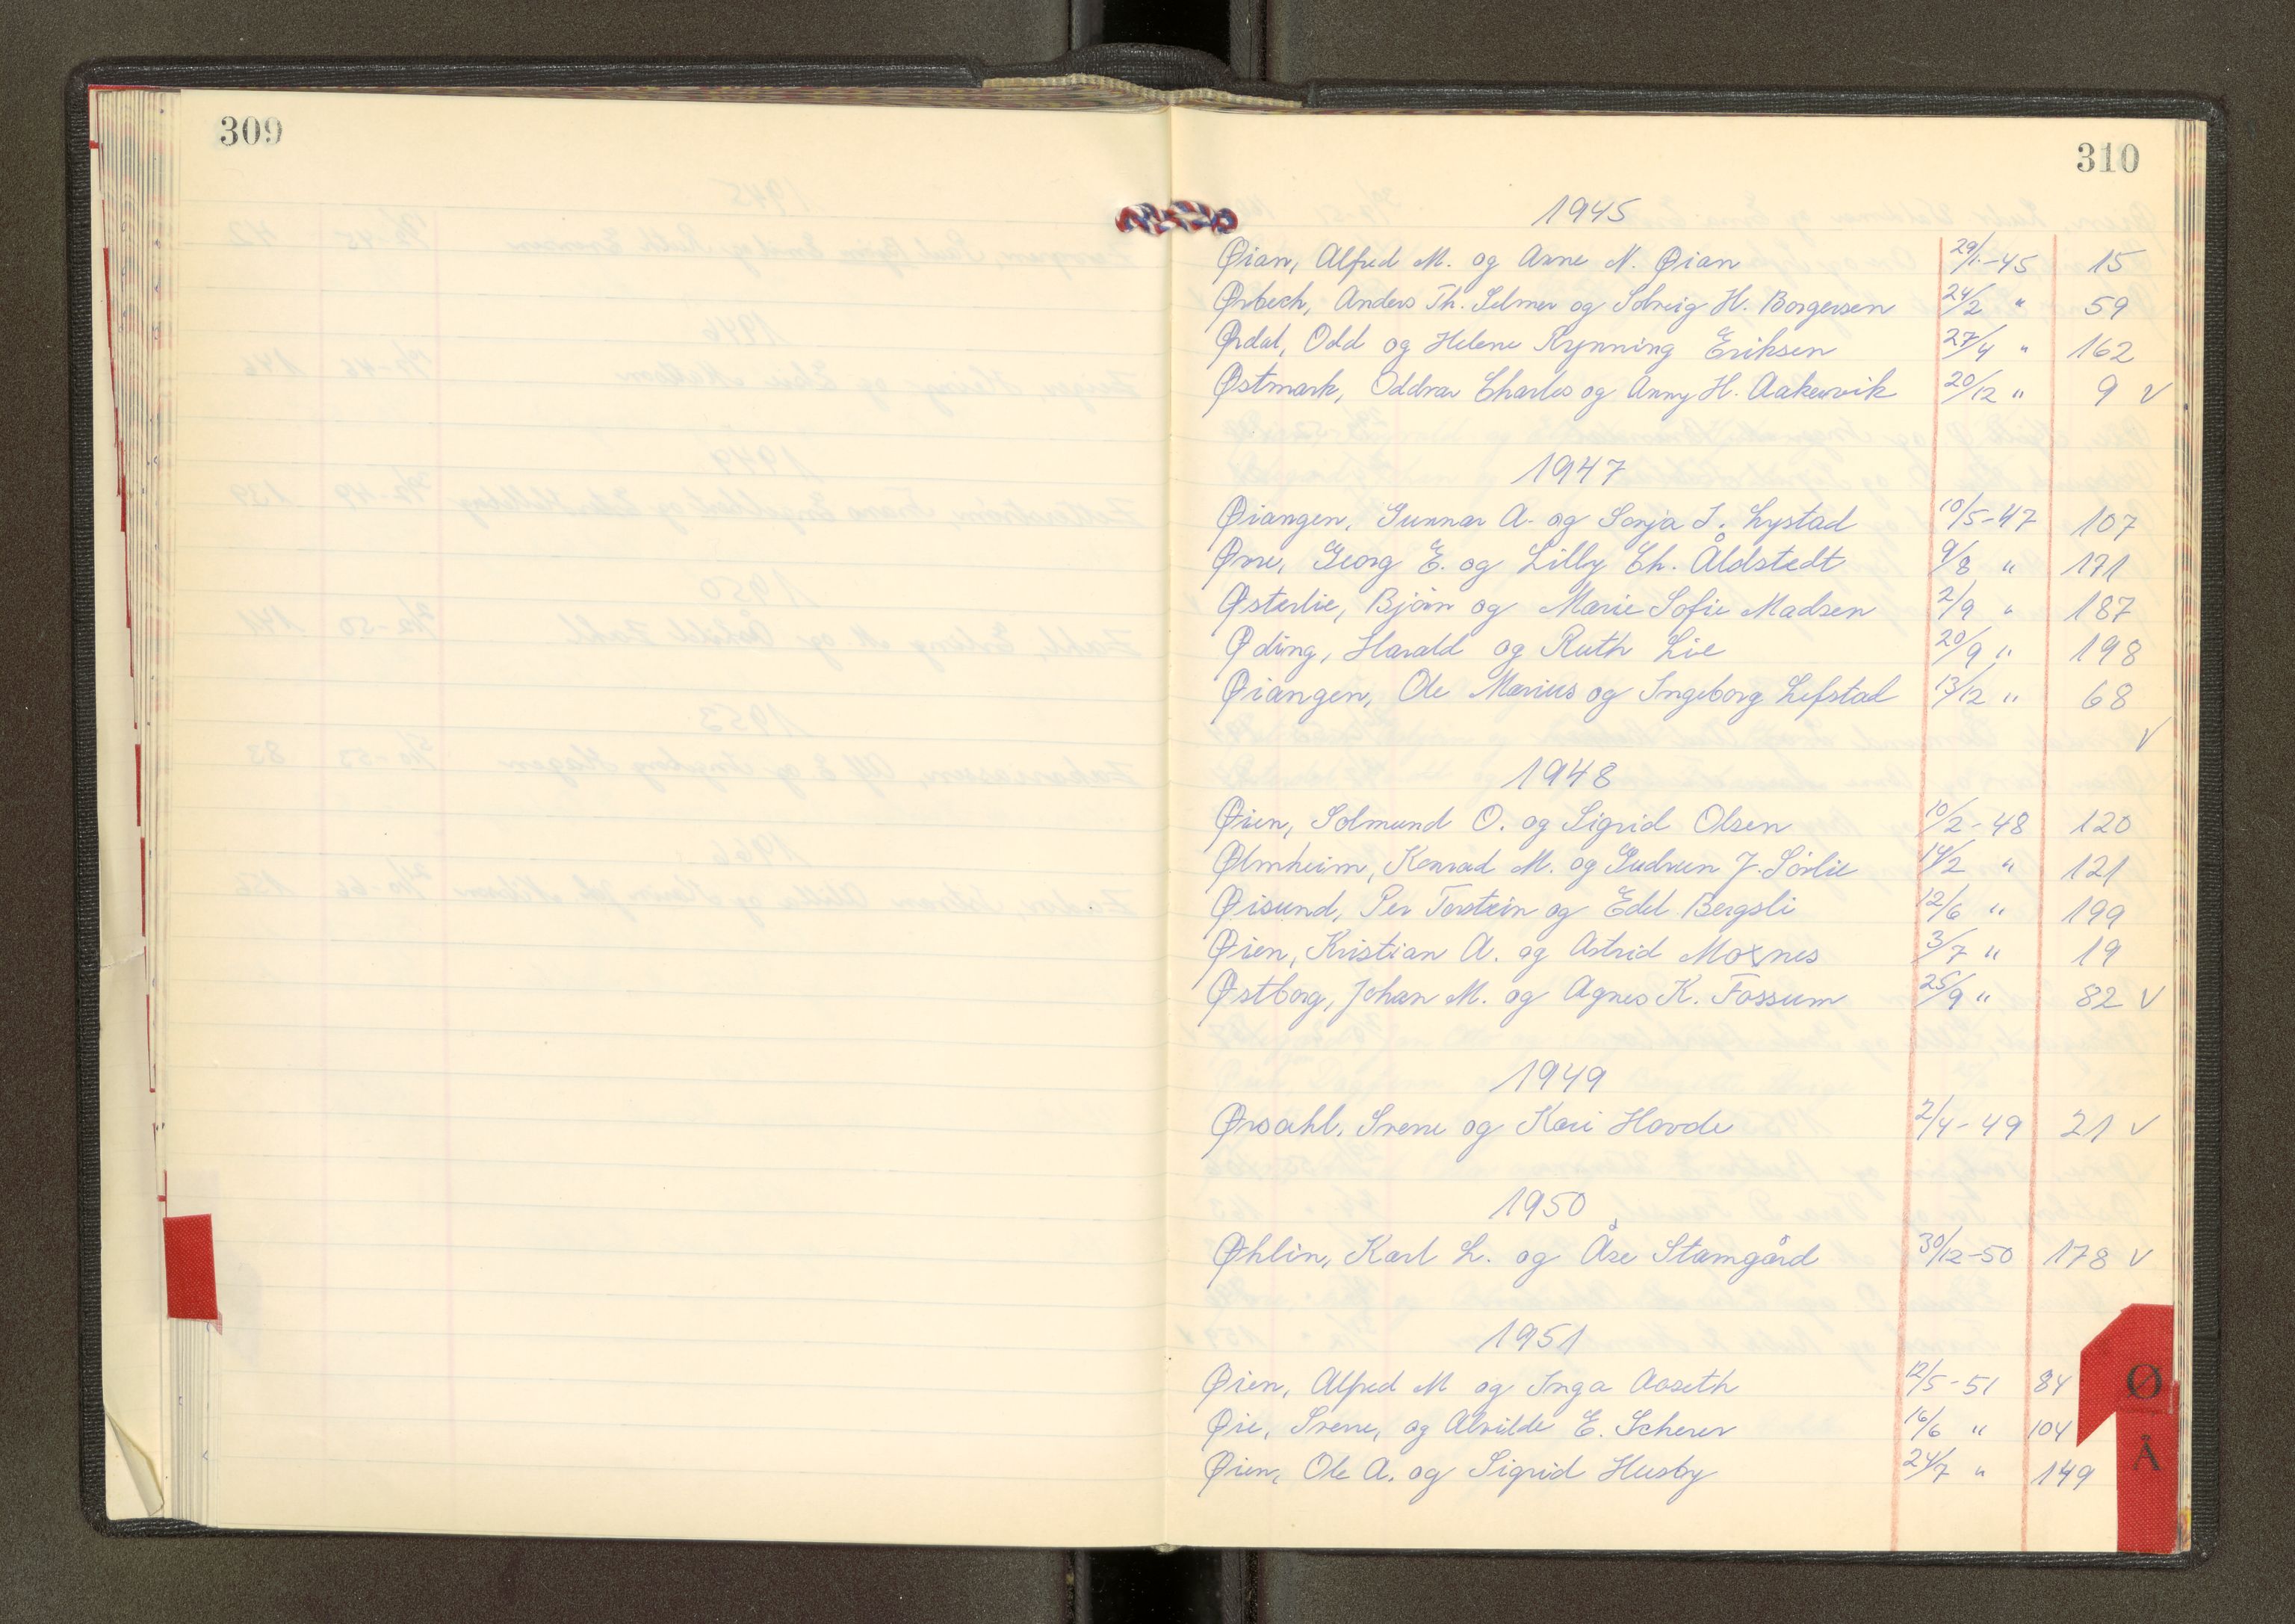 309
310
1945
Øian, Alfred M. og Anne N. Øian 29/1.-45 15
Ørbech, Anders Th. Selmer og Solveig H. Borgersen 24/2 " 59
Ørdal, Odd og Helene Rynning Eriksen 27/4 " 162
Østmark, Oddvar Charles og Anny H. Aakervik 20/12 " 9 v
1947
Øiangen, Gunnar A. og Sonja I. Lystad 10/5-47 107
Georg E. og Lilly Ch. Åldstedt 9/8 " 171
Østerlie, Bjørn og Marie Sofie Madsen 2/9 " 187
Øding, Harald og Ruth Lie 20/9 " 198
Øiangen, Ole Marius og Ingeborg Lefstad 13/12 " 68
v
1948
Øien, Solmund O. og Sigrid Olsen 10/2-48 120
Ølmheim, Konrad M. og Gudrun J. Sörlie 14/2 " 121
Øisund, Per Torstein og Edel Bergsli 12/6 " 199
Øien, Kristian A. og Astrid Moxnes 3/7 " 19
Østborg, Johan M. og Agnes K. Fossum 25/9 " 82 v
1949
Ørsahl, Svene og Kari Hovde 2/4-49 21 v
1950
Øhlin, Karl L. og Åse Stamgård 30/12-50 178 v
1951
Øien, Alfred M og Inga Aaseth 12/5-51 84
Øie, Svene, og Alvilde E. Scherer 16/6 " 104
Øien, Ole A. og Sigrid Husby 24/7 " 149
Ø
Å